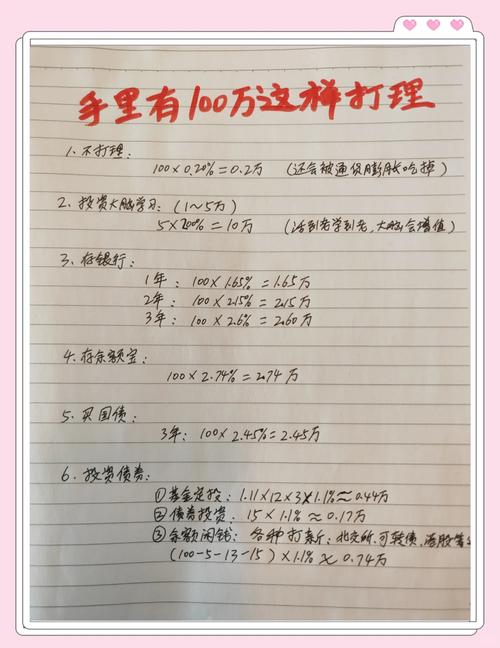 手里有100万这样打理
1、不打理:
100×0.20%=0.2万 (还会被通货膨胀吃掉)
2、投资大脑学习: (1~5万)
5×200%=10万 (活到老学到老,大脑会增值)
3、存银行:
1年: 100×1.65%=1.65万
2年: 100×2.15%=2.15万
3年: 100×2.6%=2.60万
4、存余额宝:
100×2.74%=2.74万
5、买国债:
3年: 100×2.45%=2.45万
6、投资债券:
①基金定投: 1.11×12×3×1.1%≈0.44万
②债券投资: 15×1.1%≈0.17万
③余额闲钱: 各种打新: 北交所、可转债、港股等
(100-5-13-15)×1.1%≈0.74万